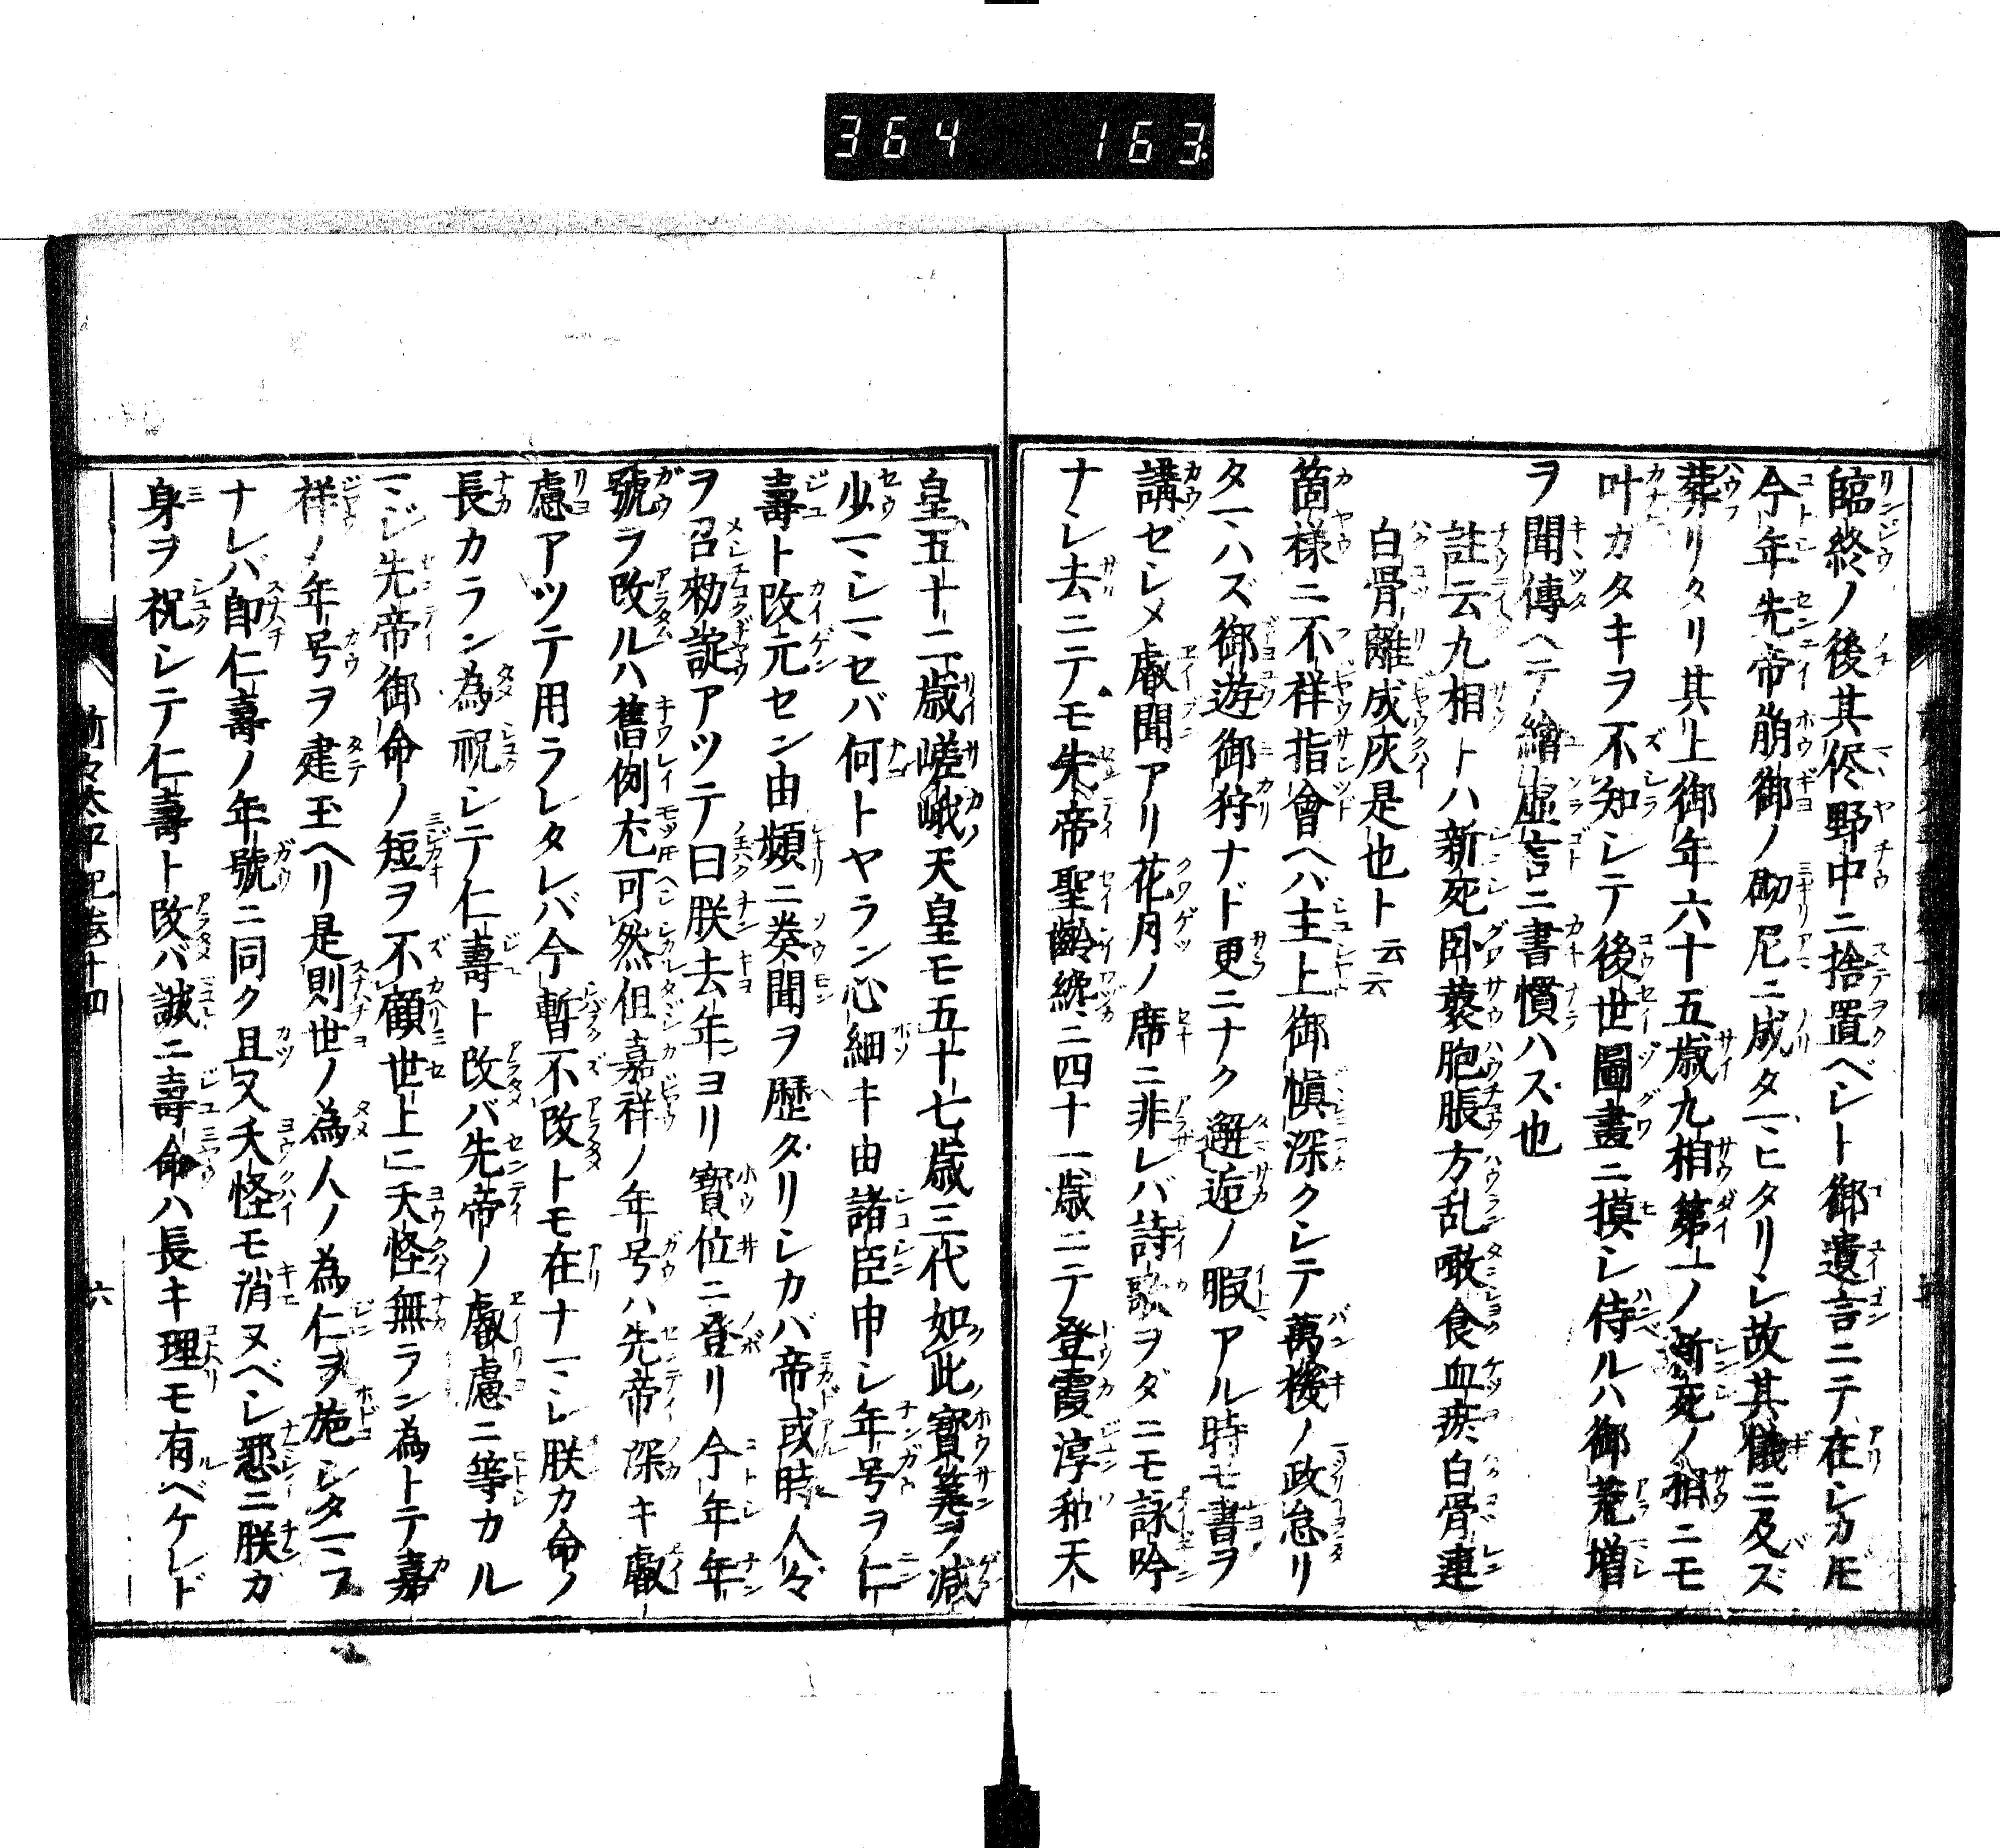 364 163
臨終ノ後其侭野中ニ捨置ベシト御遺言ニテ在シカ𪜈
今年先帝崩御ノ砌尼ニ成タマヒタリシ故其儀ニ及ズ
葬リタリ其上御年六十五歳九相第一ノ新死ノ相ニモ
叶ガタキヲ不知シテ後世圖畫ニ摸シ侍ルハ御荒増
ヲ聞傳ヘテ繪虚言ニ書慣ハス也
註云九相トハ新死肪脹方乱噉食血痕白骨連
白骨離成灰是也ト云云
箇様ニ不祥指會ヘバ主上御愼深クシテ萬機ノ政怠リ
タマハズ御遊御狩ナド更ニナク邂逅ノ暇アル時モ書ヲ
講ゼシメ叡聞アリ花月ノ席ニ非レバ詩歌ヲダニモ詠吟
ナシ去ニテモ先帝聖齢纔ニ四十一歳ニテ登霞淳和天
皇五十二歳嵯峨天皇モ五十七歳三代如此寳筭ヲ減
少マシマセバ何トヤラン心細キ由諸臣申シ年号ヲ仁
壽ト改元セン由頻ニ奏聞ヲ歴ダリシカバ帝或時人々
ヲ召勅諚アツテ曰朕去年ヨリ寳位ニ登リ今年年
號ヲ改ルハ舊例尤可然但嘉祥ノ年号ハ先帝深キ叡
慮アツテ用ラレタレバ今暫不改トモ在ナマシ朕カ命ノ
長カラン為祝シテ仁壽ト改バ先帝ノ叡慮ニ等カル
マジ先帝御命ノ短ヲ不顧世上ニ夭怪無ラン為トテ嘉
祥ノ年号ヲ建玉ヘリ是則世ノ為人ノ為仁ヲ施シタマフ
ナレバ即仁壽ノ年號ニ同ク且又夭怪モ消ヌベシ悉ニ朕ガ
身ヲ祝シテ仁壽ト改バ誠ニ壽命ハ長キ理モ有ベケレド
前々太平記巻十四 六